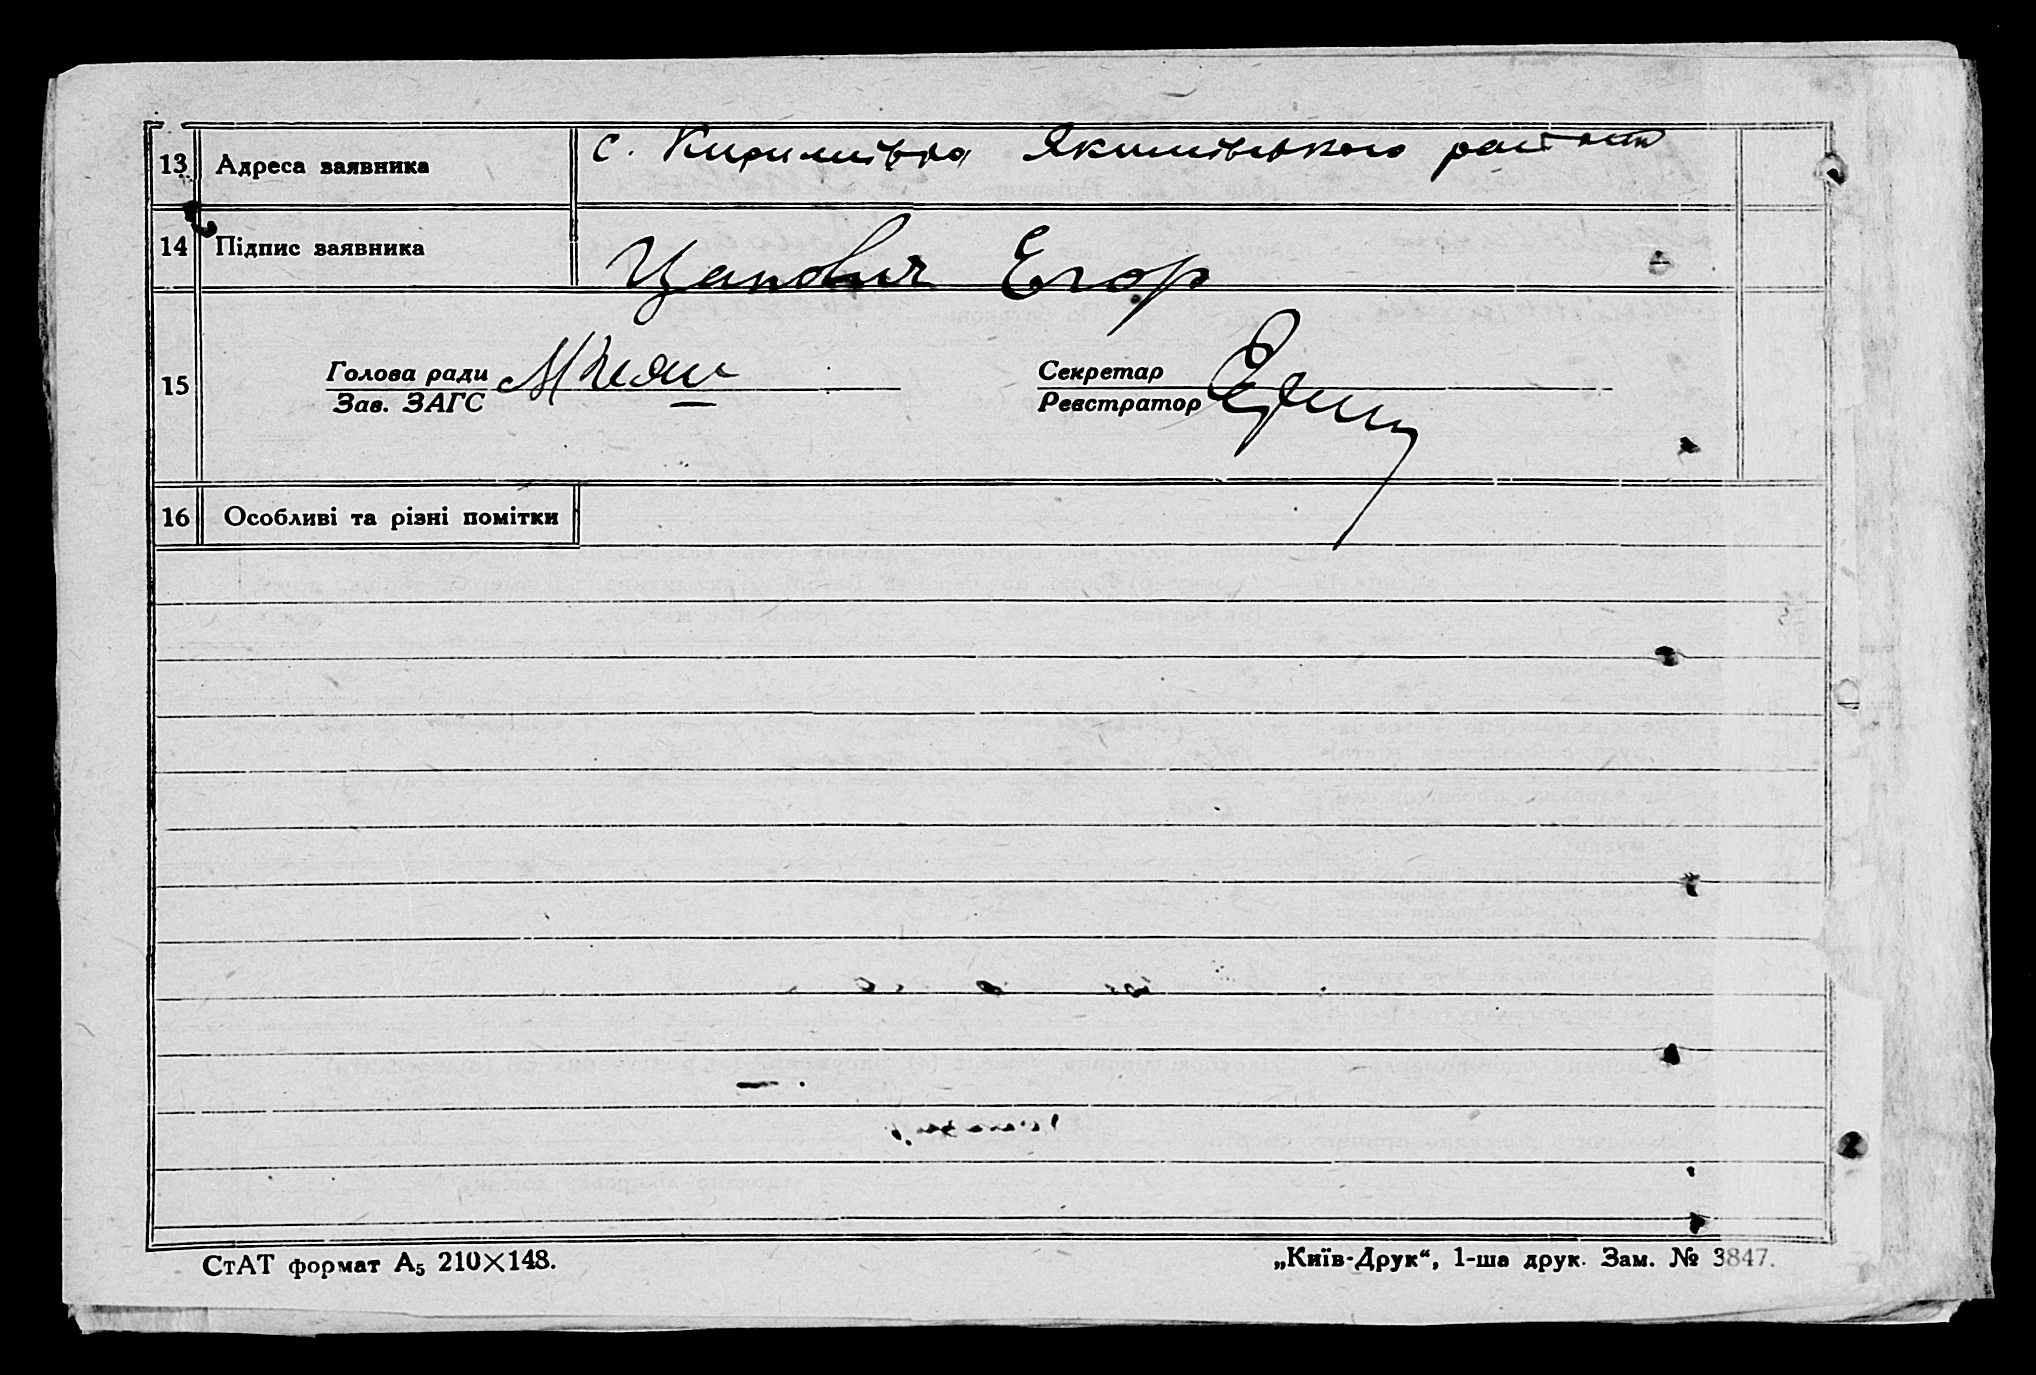 13 Адреса заявника с. Кирилівка Якимівського району
14 Підпис заявника Цапович Егор
15 Голова ради Секретар
Зав. ЗАГС Реєстратор
16 Особливі та різні помітки
СтАТ формат А₅ 210×148. „Київ-Друк“, 1-ша друк. Зам. № 3847.